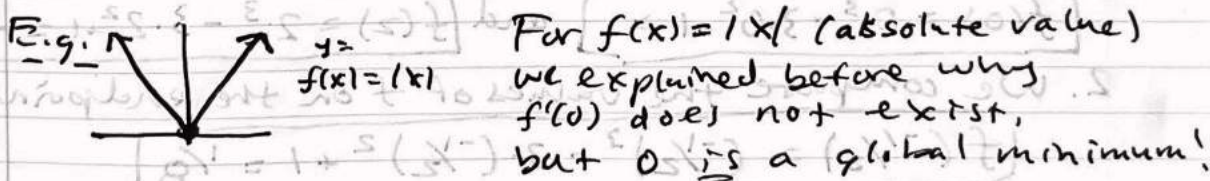 E.g. y= For f(x) = |x| (absolute value)
f(x) = |x| we explained before why
f'(0) does not exist,
but 0 is a global minimum!